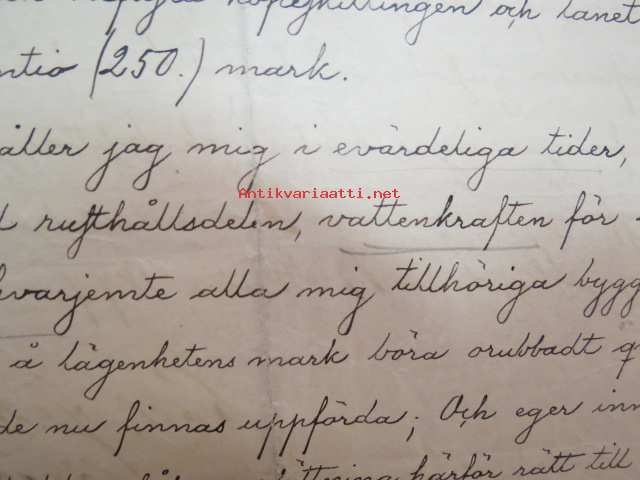 köpeskillingen och lånet
ntio (250.) mark.
åller jag mig i evärdeliga tider,
Antikvariaatti.net
d rusthållsdelen, vattenkraften för
hvarjemte alla mig tillhöriga bygg
å lägenhetens mark böra orubbadt q
de nu finnas uppförda; Och eger inn
härför rätt till